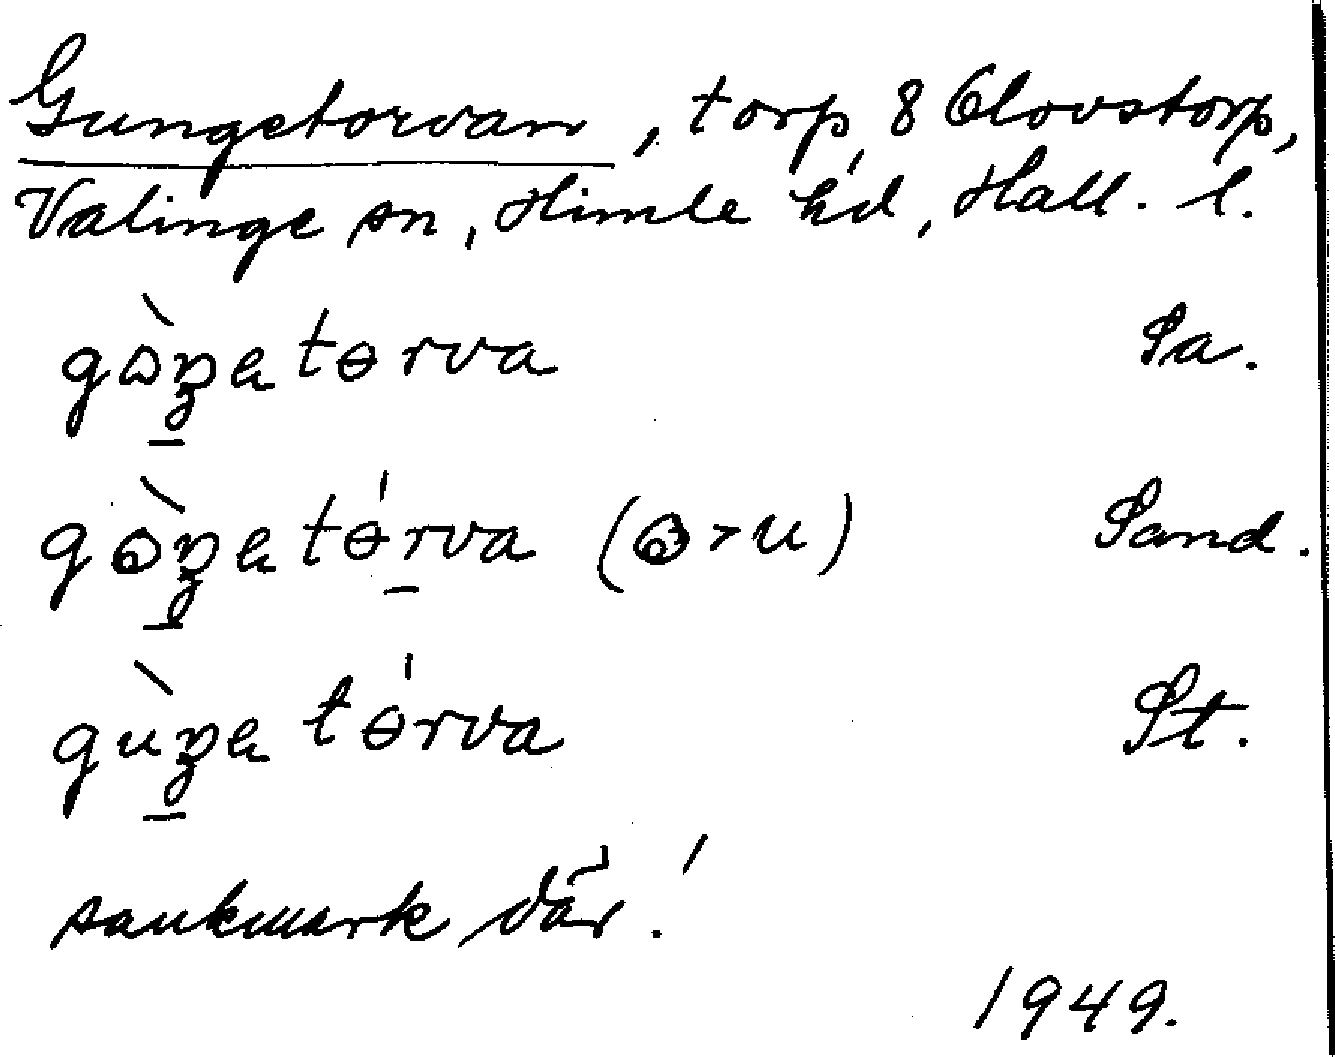 Gungetorvan, torp, 8 Olovstorp,
Valinge sn, Himle hd, Hall. l.
gɷ̀ŋetɵrva Sa.
gɷ̀ŋetɵ́rva (ɷ > u) Sand.
gùŋetɵ́rva St.
sankmark där!
1949.